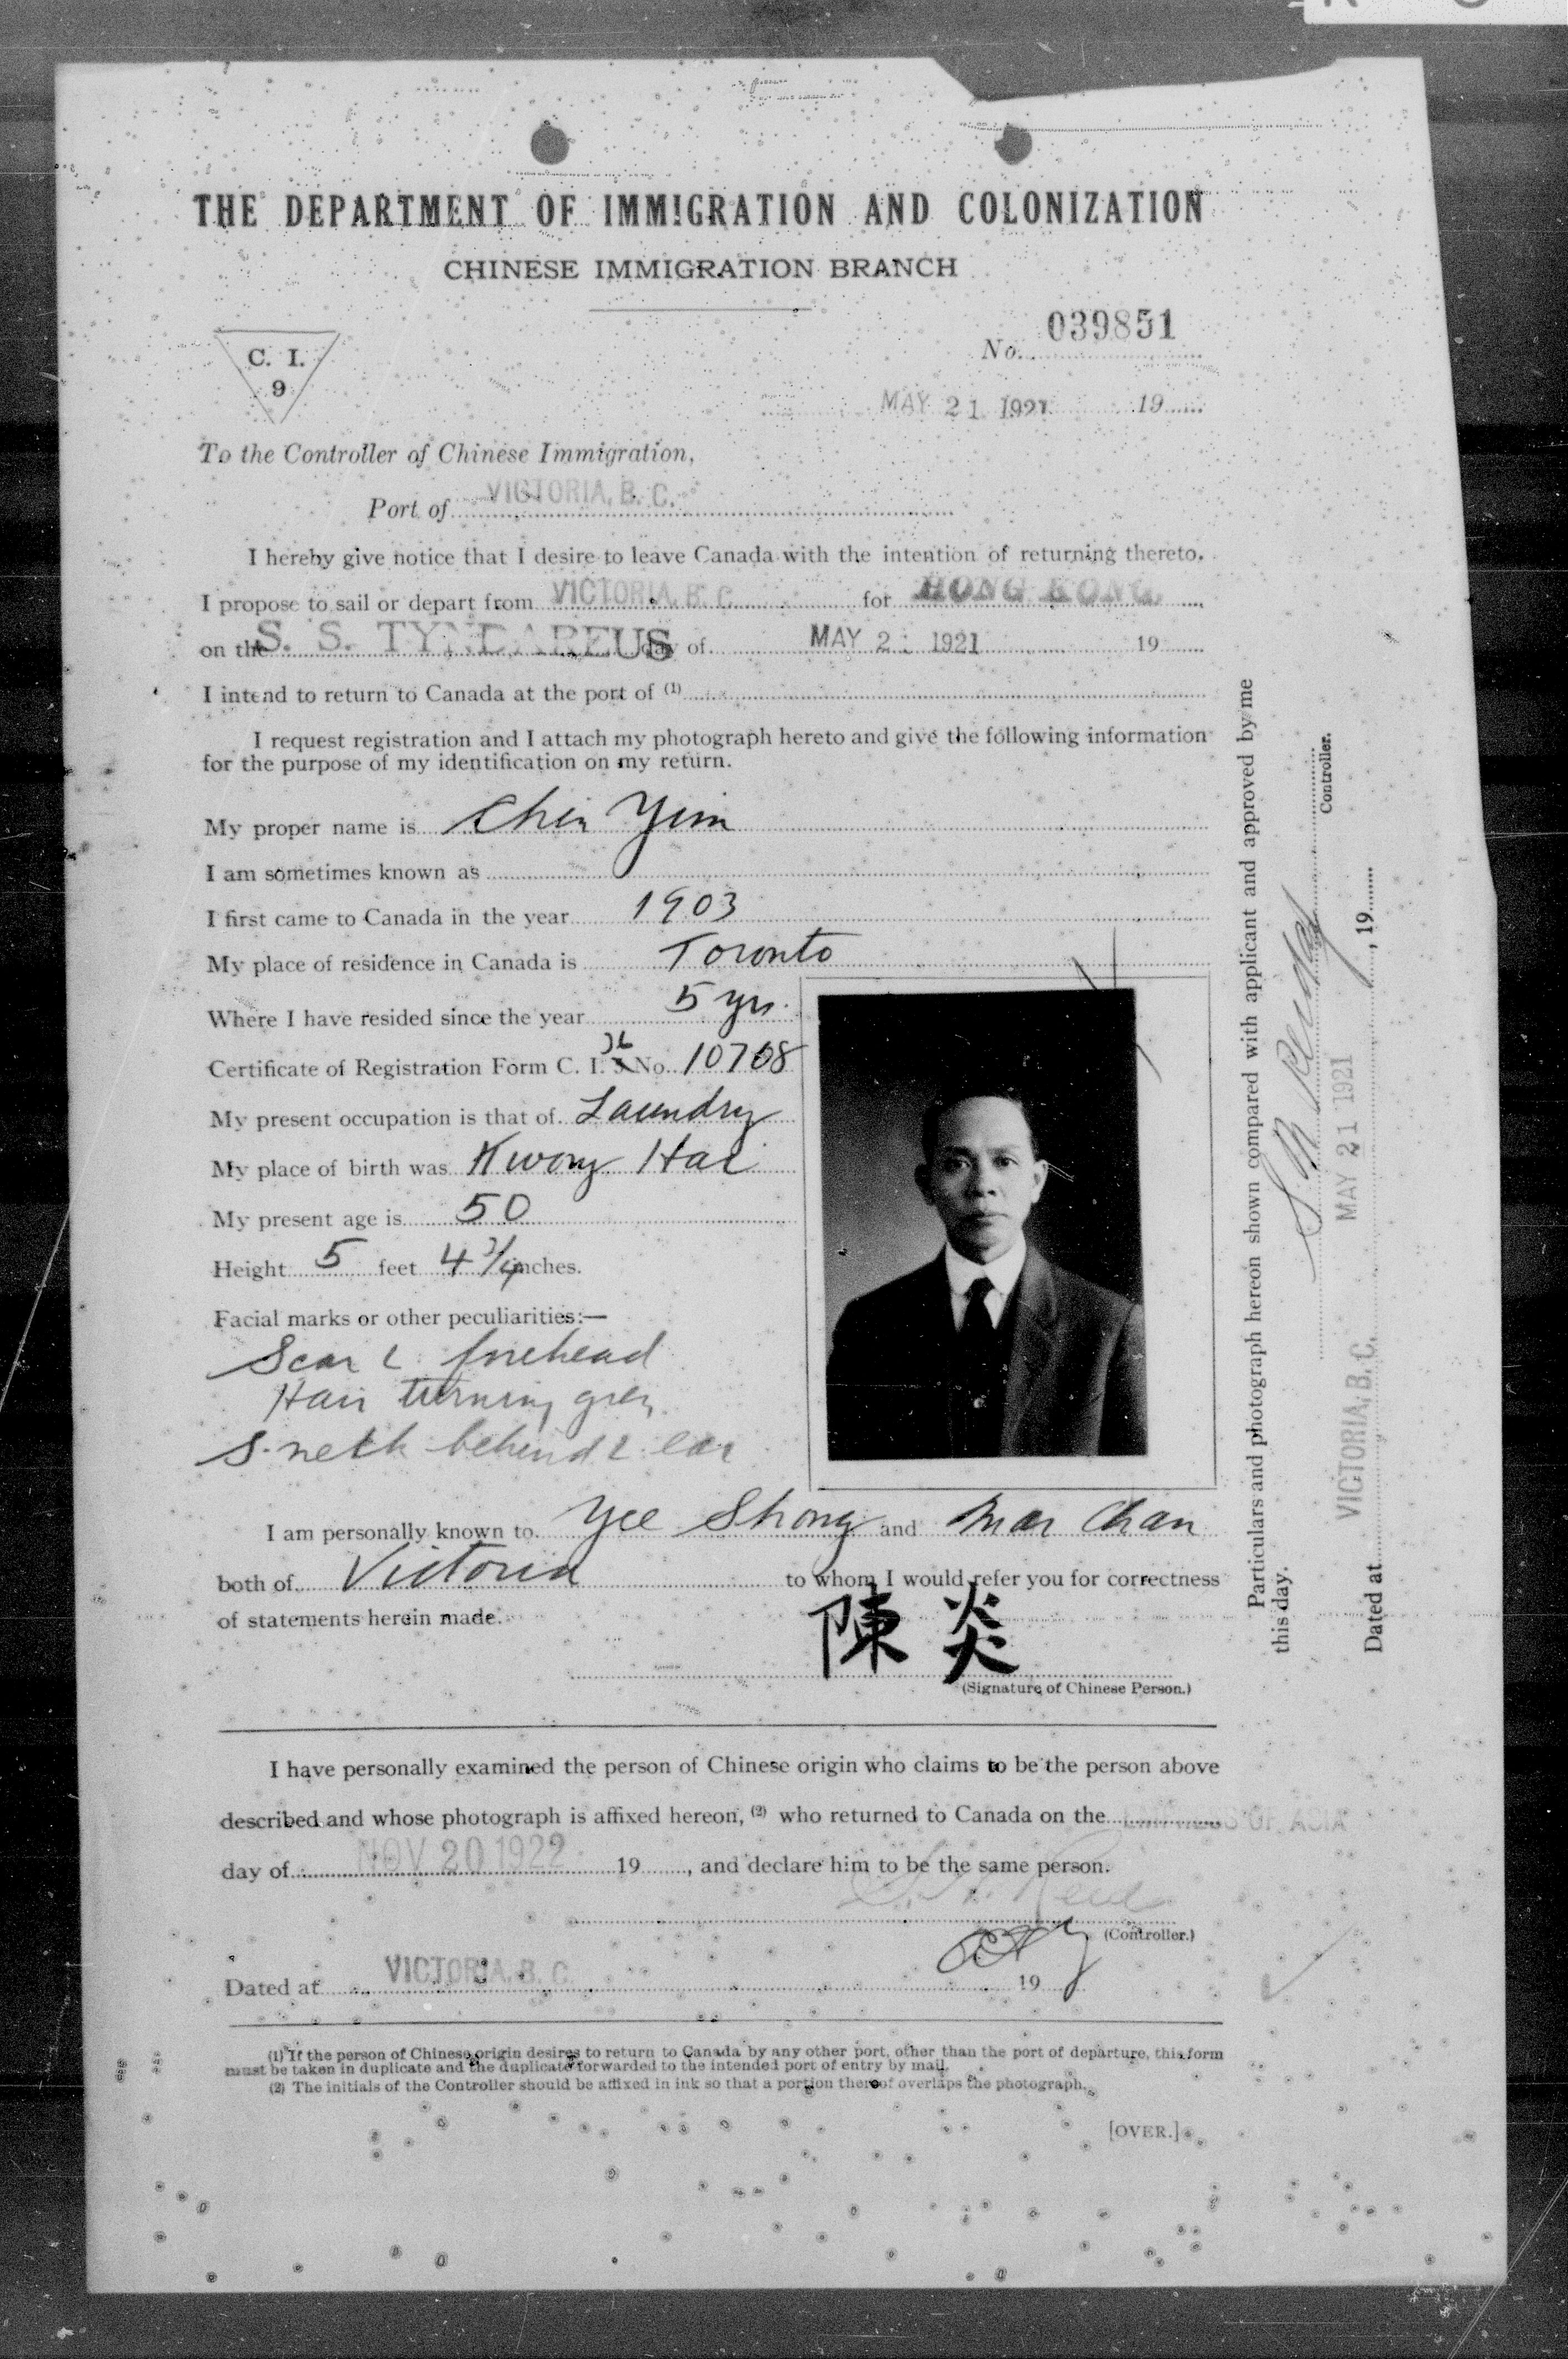 THE DEPARTMENT OF IMMIGRATION AND COLONIZATION
CHINESE IMMIGRATION BRANCH
C. I.
9
No. 039851
MAY 21 1921 19
To the Controller of Chinese Immigration,
Port of VICTORIA, B. C.
I hereby give notice that I desire to leave Canada with the intention of returning thereto.
I propose to sail or depart from VICTORIA, B. C. for HONG KONG
on the S. S. TYNDAREUS day of MAY 2 1921 19
I intend to return to Canada at the port of (1)
I request registration and I attach my photograph hereto and give the following information
for the purpose of my identification on my return.
My proper name is Chin Yim
I am sometimes known as
I first came to Canada in the year 1903
My place of residence in Canada is Toronto
Where I have resided since the year 5 yrs.
Certificate of Registration Form C. I. No. 10708
My present occupation is that of Laundry
My place of birth was Kwong Hai
My present age is 50
Height 5 feet 4 3/4 inches.
Facial marks or other peculiarities:—
Scar L forehead
Hair turning grey
S. neck behind ear
I am personally known to Yee Shong and Mar Chan
both of Victoria to whom I would refer you for correctness
of statements herein made.
陳炎
(Signature of Chinese Person.)
I have personally examined the person of Chinese origin who claims to be the person above
described and whose photograph is affixed hereon, (2) who returned to Canada on the OF ASIA
day of NOV 20 1922 19 , and declare him to be the same person.
(Controller.)
Dated at VICTORIA, B. C. 19
(1) If the person of Chinese origin desires to return to Canada by any other port, other than the port of departure, this form
must be taken in duplicate and the duplicate forwarded to the intended port of entry by mail.
(2) The initials of the Controller should be affixed in ink so that a portion thereof overlaps the photograph.
[OVER.]
Particulars and photograph hereon shown compared with applicant and approved by me
this day.
Controller.
Dated at VICTORIA, B. C. MAY 21 1921 , 19